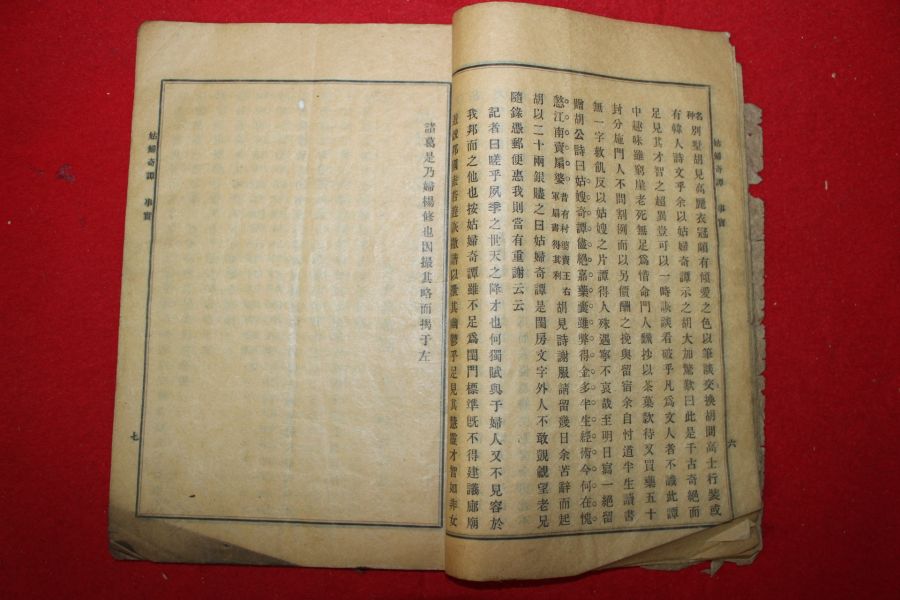 姑婦奇譚 事實
六
名
种別墅胡見高麗衣冠頗有傾愛之色以筆談交換胡問高士行裝或
有韓人詩文乎余以姑婦奇譚示之胡大加驚歎曰此是千古奇絕而
足見其才智之超異豈可以一時詼談看破乎凡爲文人者不識此譚
中趣味雖窮崖老死無足爲惜命門人飜抄以茶菓欵待又買藥五十
封分施門人不問割例而以另價酬之挽與留宿余自忖道半生讀書
無一字救飢反以姑嫂之片譚得人殊遇寧不哀哉至明日寫一絕留
贈胡公詩曰姑嫂奇譚儘絕嘉藥囊雖弊得金多半生經術今何在愧
愁江南賣扇婆 昔有村婆賣王右
軍扇書得其利 胡見詩謝服請留幾日余苦辭而起
胡以二十兩銀賻之曰姑婦奇譚是閨房文字外人不敢覬覦望老兄
隨錄憑郵便惠我則當有重謝云云
記者曰嗟乎夙季之世天之降才也何獨賦與于婦人又不見容於
我邦而之他也按姑婦奇譚雖不足爲閨門標準旣不得建議廊廟
其幽鬱乎足見其慧靈才智如非女
諸葛是乃婦楊修也因撮其略而揭于左
姑婦奇譚 事實
七